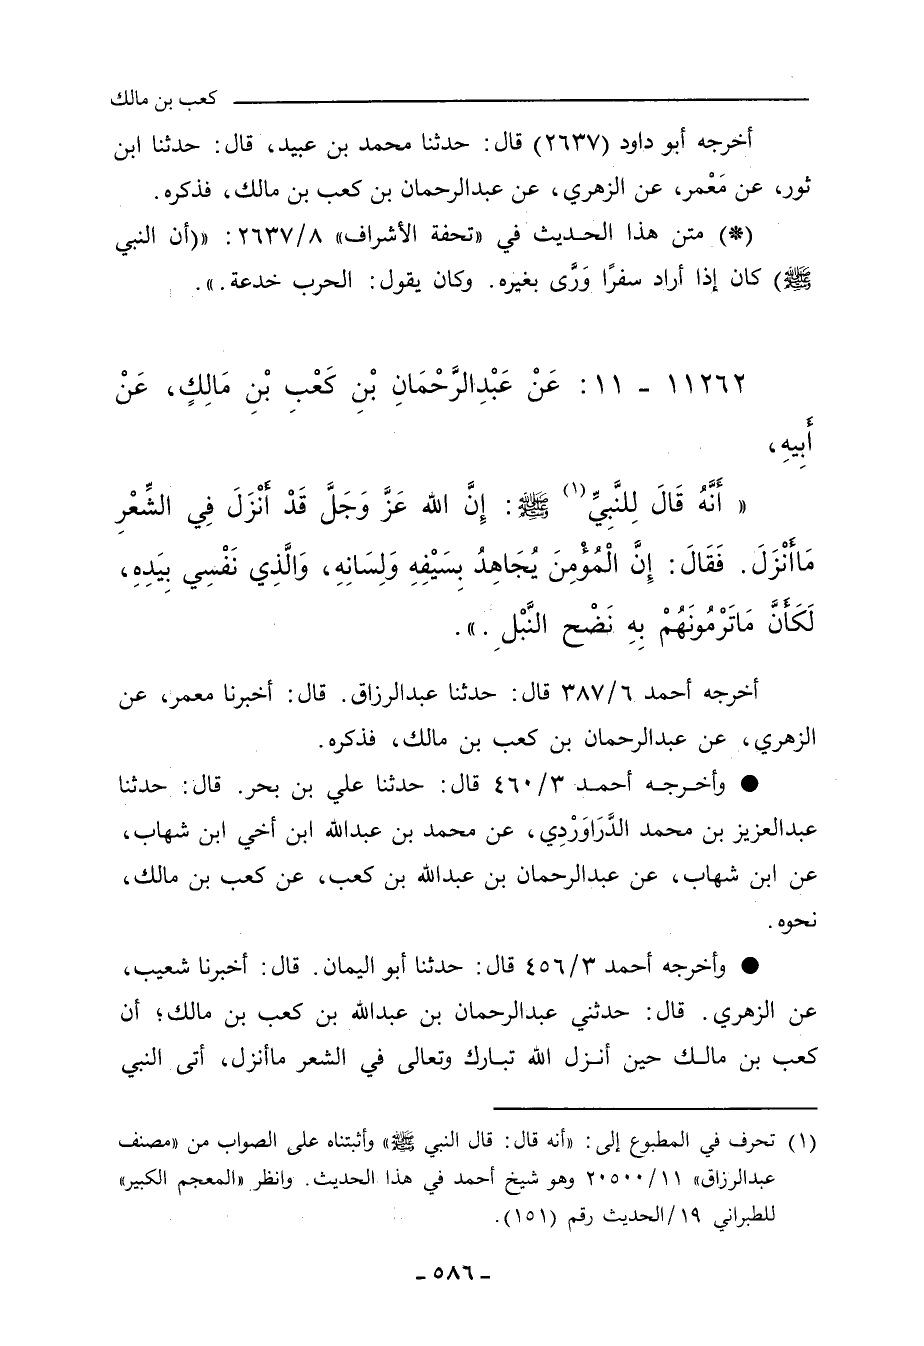 كعب بن مالك
أخرجه أبو داود (٢٦٣٧) قال: حدثنا محمد بن عبيد، قال: حدثنا ابن
ثور، عن مَعْمر، عن الزهري، عن عبدالرحمان بن كعب بن مالك، فذكره.
(*) متن هذا الحديث في «تحفة الأشراف» ٢٦٣٧/٨: «(أن النبي
ﷺ) كان إذا أراد سفرًا وَرَّى بغيره. وكان يقول: الحرب خدعة.».
١١٢٦٢ - ١١: عَنْ عَبْدِالرَّحْمَانِ بْنِ كَعْبِ بْنِ مَالِكٍ، عَنْ
أَبِيهِ،
« أَنَّهُ قَالَ لِلنَّبِيِّ(١) ﷺ: إِنَّ الله عَزَّ وَجَلَّ قَدْ أَنْزَلَ فِي الشِّعْرِ
مَاأَنْزَلَ. فَقَالَ: إِنَّ الْمُؤْمِنَ يُجَاهِدُ بِسَيْفِهِ وَلِسَانِهِ، وَالَّذِي نَفْسِي بِيَدِهِ،
لَكَأَنَّ مَاتَرْمُونَهُمْ بِهِ نَضْح النَّبْلِ.».
أخرجه أحمد ٣٨٧/٦ قال: حدثنا عبدالرزاق. قال: أخبرنا معمر، عن
الزهري، عن عبدالرحمان بن كعب بن مالك، فذكره.
● وأخرجه أحمد ٤٦٠/٣ قال: حدثنا علي بن بحر. قال: حدثنا
عبدالعزيز بن محمد الدَّرَاوَرْدِي، عن محمد بن عبدالله ابن أخي ابن شهاب،
عن ابن شهاب، عن عبدالرحمان بن عبدالله بن كعب، عن كعب بن مالك،
نحوه.
● وأخرجه أحمد ٤٥٦/٣ قال: حدثنا أبو اليمان. قال: أخبرنا شعيب،
عن الزهري. قال: حدثني عبدالرحمان بن عبدالله بن كعب بن مالك؛ أن
كعب بن مالك حين أنزل الله تبارك وتعالى في الشعر ماأنزل، أتى النبي
(١) تحرف في المطبوع إلى: «أنه قال: قال النبي ﷺ» وأثبتناه على الصواب من «مصنف
عبدالرزاق» ٢٠٥٠٠/١١ وهو شيخ أحمد في هذا الحديث. وانظر «المعجم الكبير»
للطبراني ١٩/الحديث رقم (١٥١).
- ٥٨٦ -